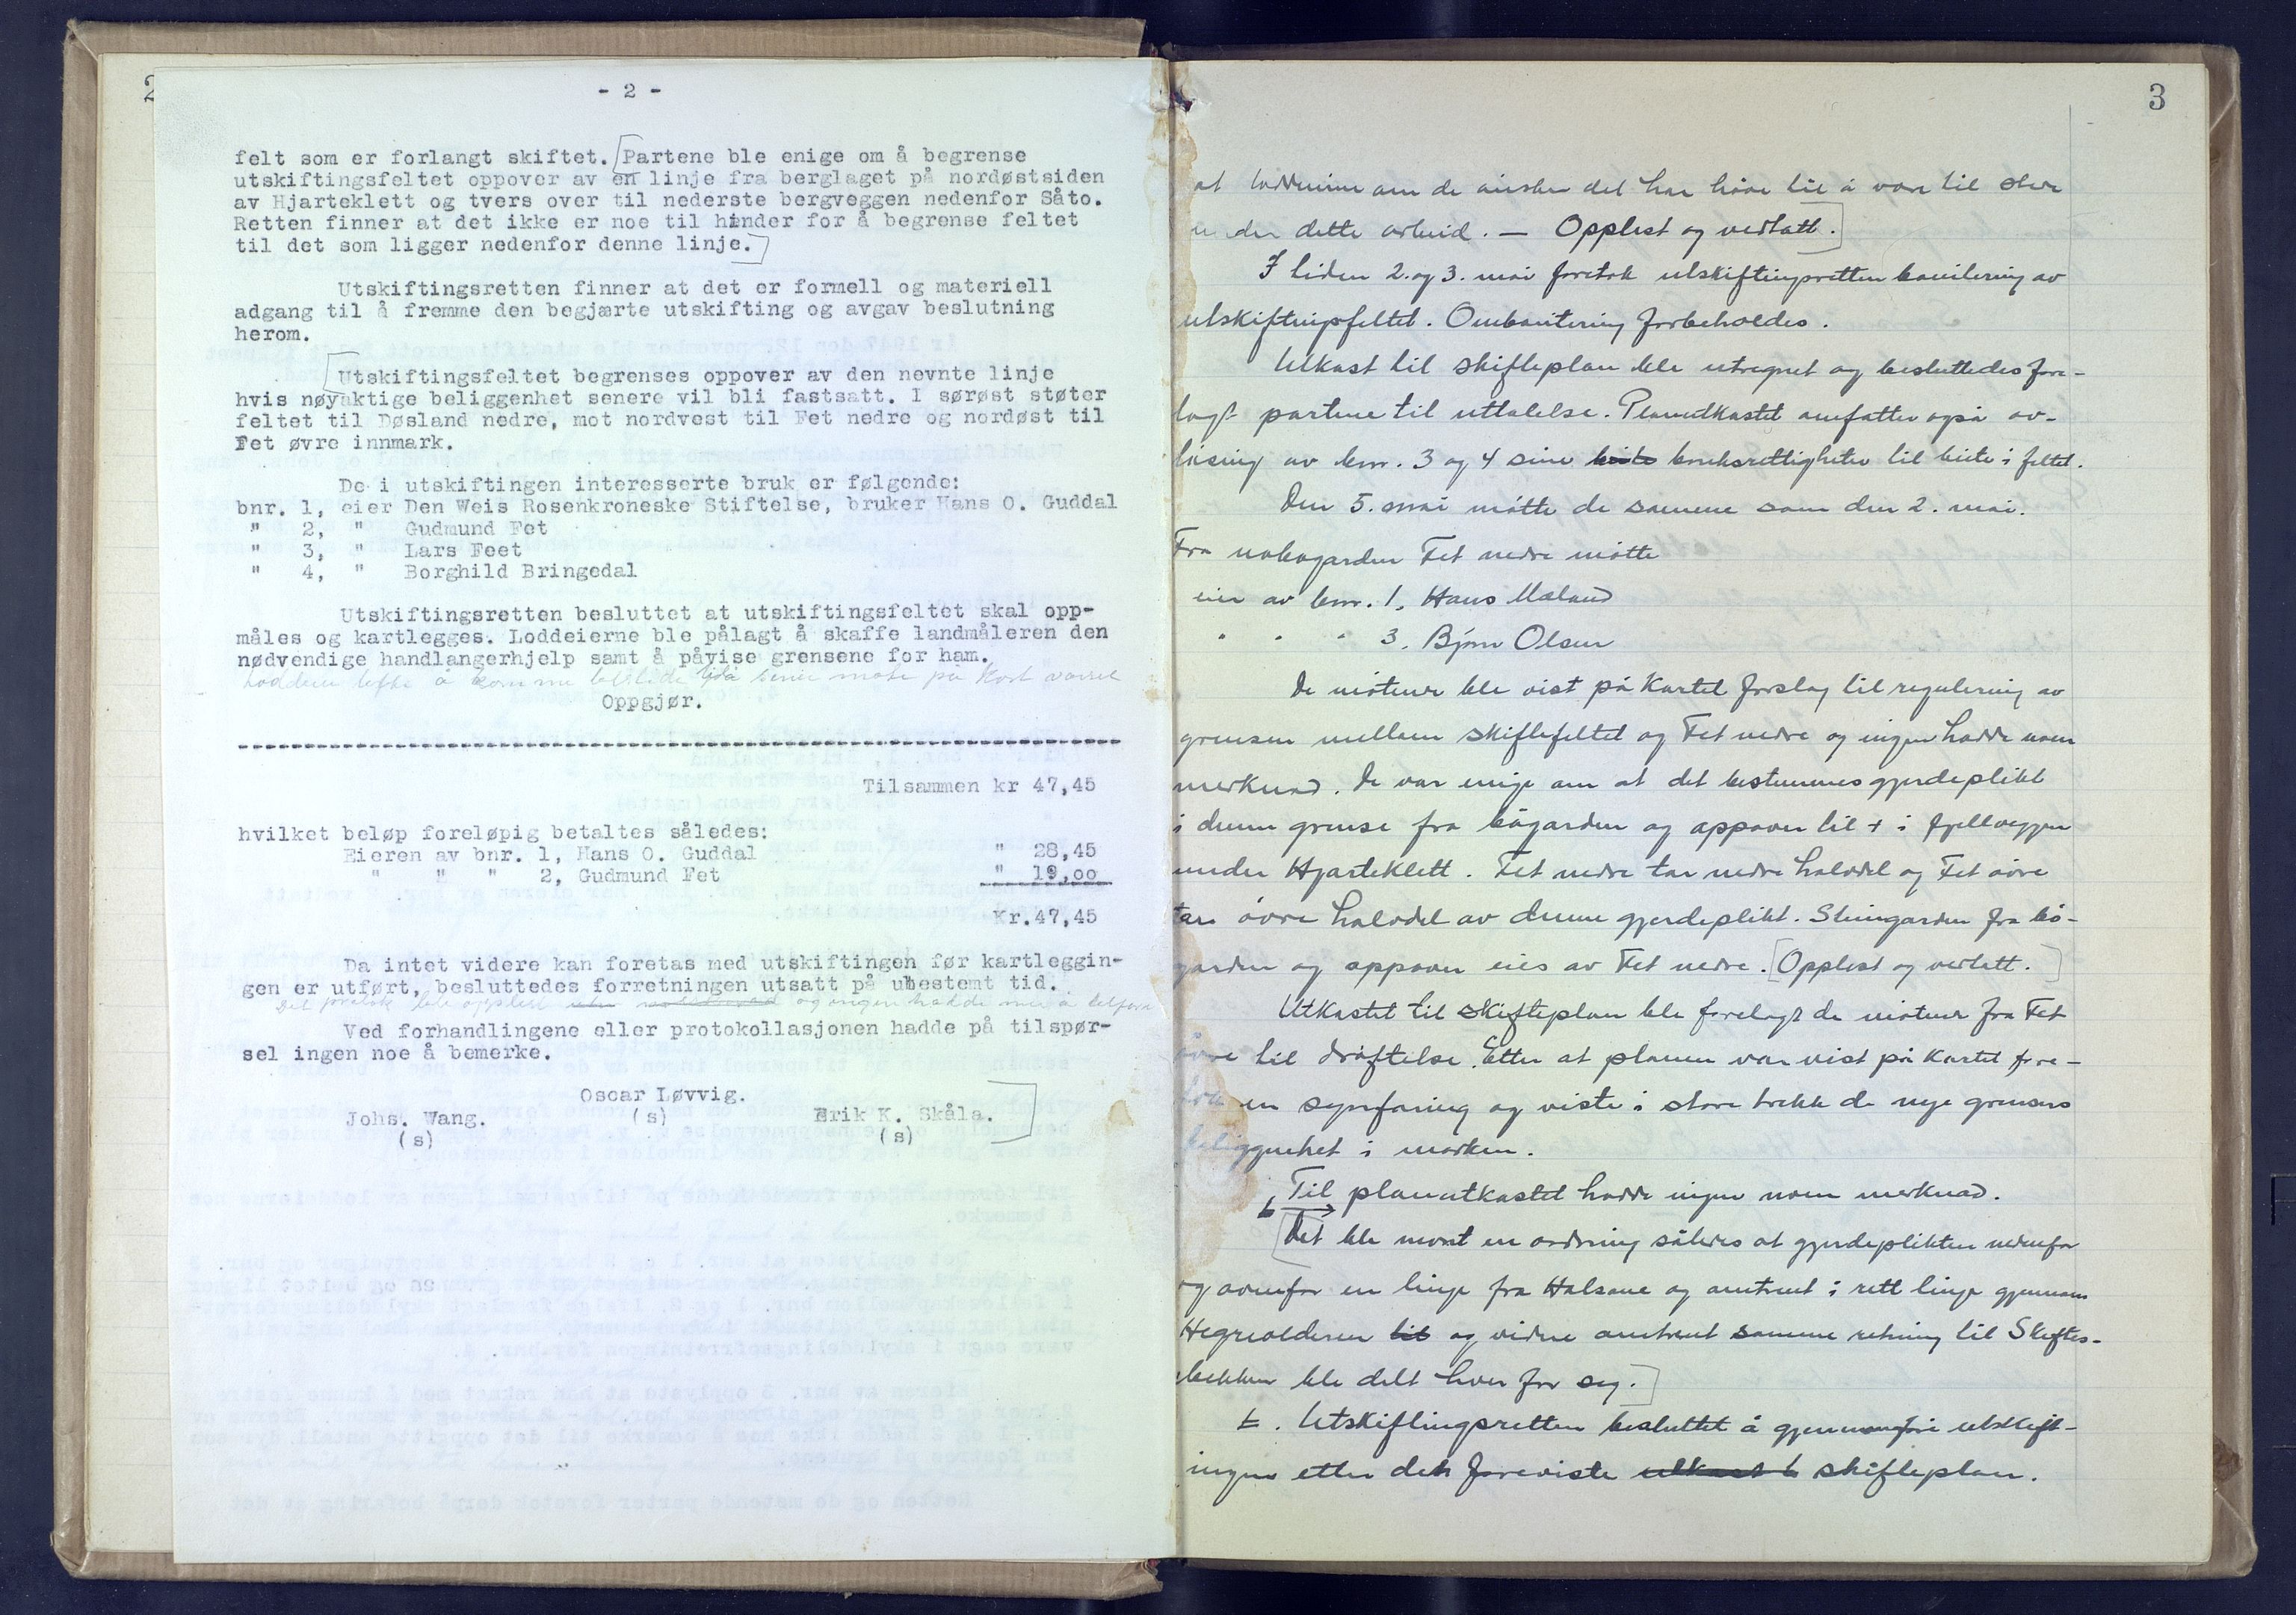 2
- 2 -
felt som er forlangt skiftet. [Partene ble enige om å begrense
utskiftingsfeltet oppover av en linje fra berglaget på nordøstsiden
av Hjarteklett og tvers over til nederste bergveggen nedenfor Såto.
Retten finner at det ikke er noe til hinder for å begrense feltet
til det som ligger nedenfor denne linje.]
Utskiftingsretten finner at det er formell og materiell
adgang til å fremme den begjærte utskifting og avgav beslutning
herom.
[Utskiftingsfeltet begrenses oppover av den nevnte linje
hvis nøyaktige beliggenhet senere vil bli fastsatt. I sørøst støter
feltet til Døsland nedre, mot nordvest til Fet nedre og nordøst til
Fet øvre innmark.
De i utskiftingen interesserte bruk er følgende:
bnr. 1, eier Den Weis Rosenkroneske Stiftelse, bruker Hans O. Guddal
" 2, " Gudmund Fet
" 3, " Lars Feet
" 4, " Borghild Bringedal
Utskiftingsretten besluttet at utskiftingsfeltet skal opp-
måles og kartlegges. Loddeierne ble pålagt å skaffe landmåleren den
nødvendige handlangerhjelp samt å påvise grensene for ham.
å komme tilstede på møte på kort varsel
Oppgjør.
Tilsammen kr 47,45
hvilket beløp foreløpig betaltes således:
Eieren av bnr. 1, Hans O. Guddal " 28,45
" " " 2, Gudmund Fet " 19,oo
Kr.47,45
Da intet videre kan foretas med utskiftingen før kartleggin-
gen er utført, besluttedes forretningen utsatt på ubestemt tid.
Det ble opplest og ingen hadde mer å tilføre
Ved forhandlingene eller protokollasjonen hadde på tilspør-
sel ingen noe å bemerke.
Oscar Løvvig.
Johs. Wang. (s) Erik K. Skåla.]
(s) (s)
3
at loddeierne om de ønsker det har høve til å være til stede
under dette arbeid. — Opplest og vedtatt.]
I tiden 2. og 3. mai foretok utskiftingsretten bonitering av
utskiftingsfeltet. Ombonitering forbeholdes.
Utkast til skifteplan ble utregnet og besluttedes fore-
lagt partene til uttalelse. Planutkastet omfatter også av-
løsing av bnr. 3 og 4 sine beite bruksrettigheter til beite i feltet.
Den 5. mai møtte de samme som den 2. mai.
Fra nabogarden Fet nedre møtte
eier av bnr. 1, Hans Mæland
" " " 3. Bjørn Olsen
De møtende ble vist på kartet forslag til regulering av
grensen mellom skiftefeltet og Fet nedre og ingen hadde noen
merknad. De var enige om at det bestemmes gjerdeplikt
i denne grense fra bøgarden og oppover til + i fjellveggen
under Hjarteklett. Fet nedre tar nedre halvdel og Fet øvre
tar øvre halvdel av denne gjerdeplikt. Steingarden fra bø-
garden og oppover eies av Fet nedre. [Opplest og vedtatt.]
Utkastet til skifteplan ble forelagt de møtende fra Fet
øvre til drøftelse. Etter at planen var vist på kartet fore-
tok en synfaring og viste i store trekk de nye grensers
beliggenhet i marken.
Til planutkastet hadde ingen noen merknad.
[Det ble nevnt en ordning således at gjerdeplikten nedenfor
og ovenfor en linje fra Halsane og omtrent i rett linje gjennom
til og videre omtrent samme retning til Skiftes-
bekken ble delt hver for seg.]
Utskiftingsretten besluttet å gjennomføre utskift-
ingen etter den foreviste utkast t skifteplan.